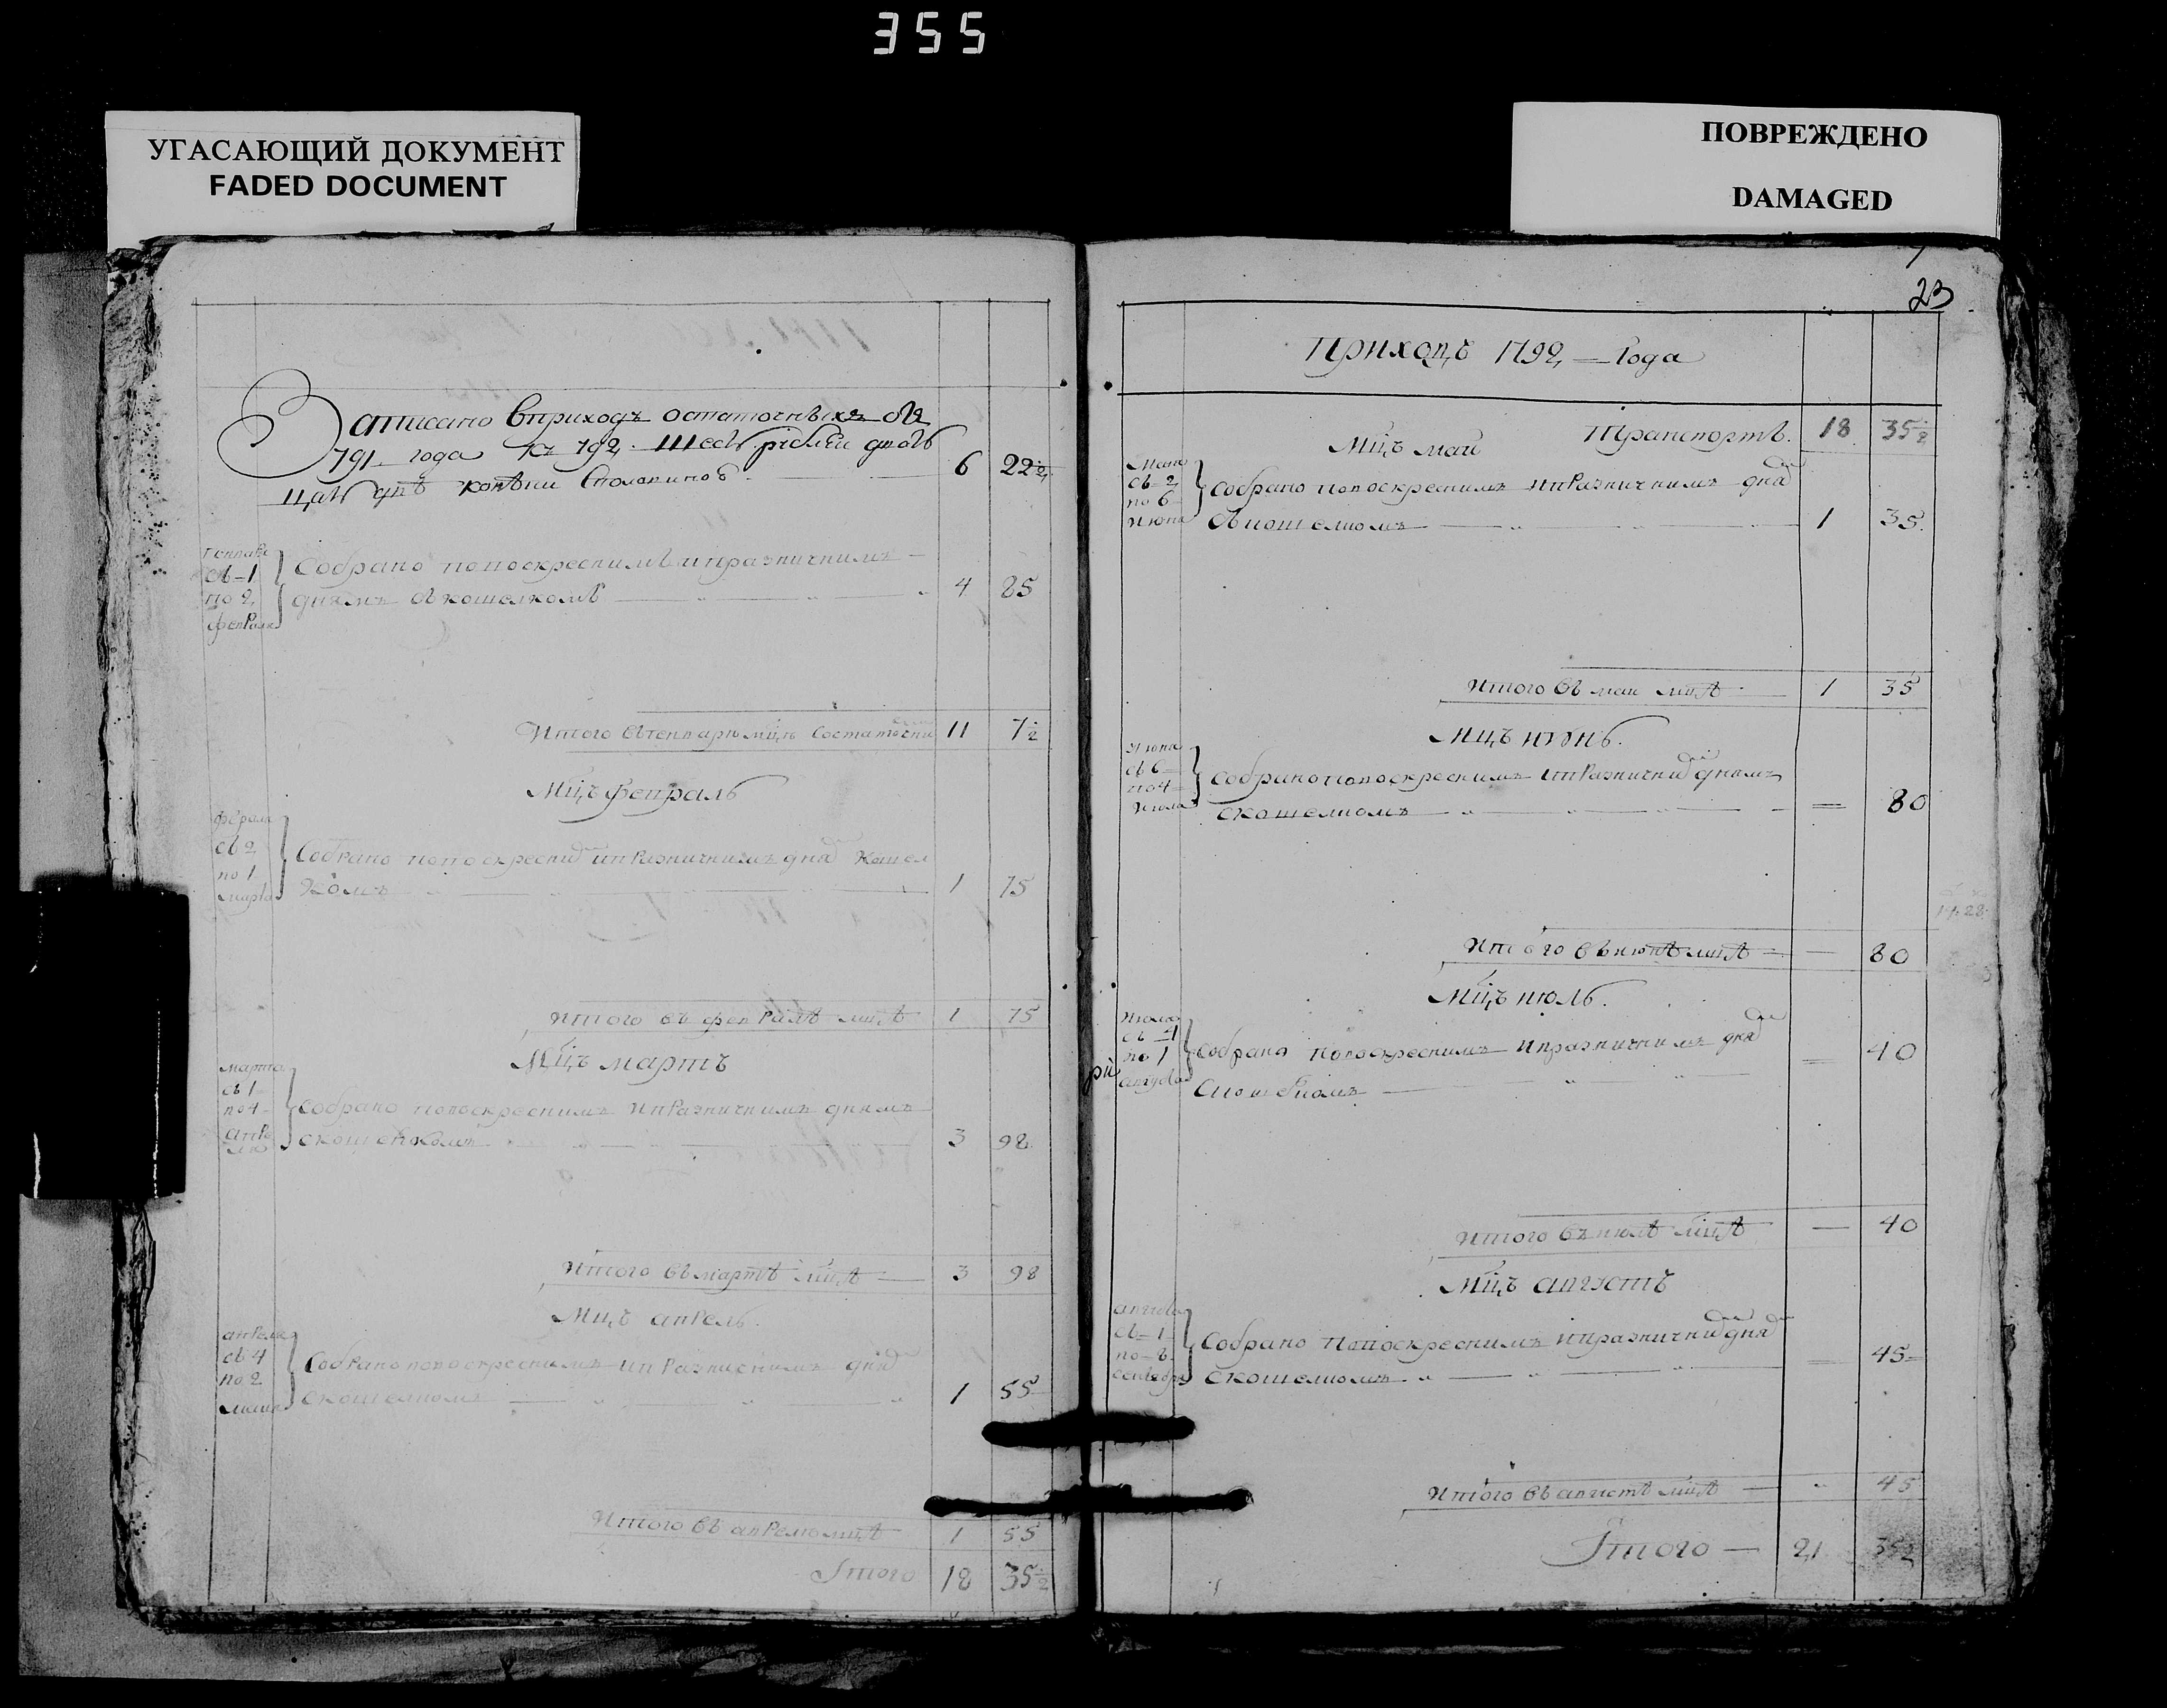 355
УГАСАЮЩИЙ ДОКУМЕНТ
FADED DOCUMENT
ПОВРЕЖДЕНО
DAMAGED
Записано вприходъ остаточныхъ отъ
791 года къ 792 шесть рублей двать
цать двѣ копѣики сполавиною 6 22½
генваря съ 1 по 2 февраля
Собрано повоскреснимъ ипразничнимъ
днямъ съкошелкомъ 4 85
Итого въгенварѣ мцѣ состаточними 11 7½
Мцъ февраль
февраля съ 2 по 1 марта
Собрано повоскресним ипразничнимъ дня кошел
комъ 1 75
Итого въ февралѣ мцѣ 1 75
Мцъ мартъ
марта съ 1 по 4 апреля
Собрано повоскреснимъ ипразничнимъ днямъ
скошелкомъ 3 98
Итого въ мартѣ мцѣ 3 98
Мцъ апрель.
апреля съ 4 по 2 маия
Собрано повоскреснимъ ипразничнимъ дня
скошелкомъ 1 55
Итого въ апрелю мцѣ 1 55
Итого 18 35½
23
Приходъ 1792 Года
Транспортъ. 18 35½
Мцъ маи
Маия съ 2 по 6 июня
Собрано повоскреснимъ ипразничнимъ дня
съкошелкомъ 1 35
Итого въ маи мцѣ 1 35
Мцъ июнь.
Июня съ 6 по 4 июля
Собрано повоскреснимъ ипразнични днямъ
скошелкомъ 80
Итого въ июнѣ мцѣ 80
Мцъ июль.
Июля съ 4 по 1 августа
Собрано повоскреснимъ ипразничнимъ дня
скошелкомъ 40
Итого въ июлѣ мцѣ 40
Мцъ августъ
августа съ 1 по 8 сентября
Собрано повоскреснимъ ипразнични дня
скошелкомъ 45
Итого въ августѣ мцѣ 45
Итого 21 35½